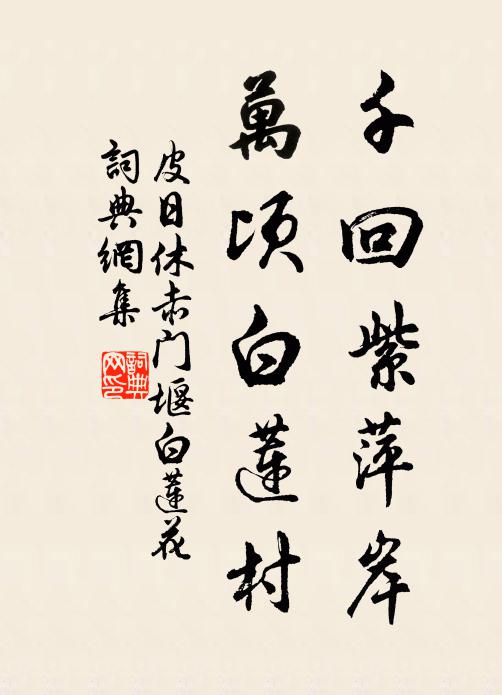 千回紫萍岸
萬頃白蓮村
皮日休赤門堰白蓮花
詞典網集
詞典網印